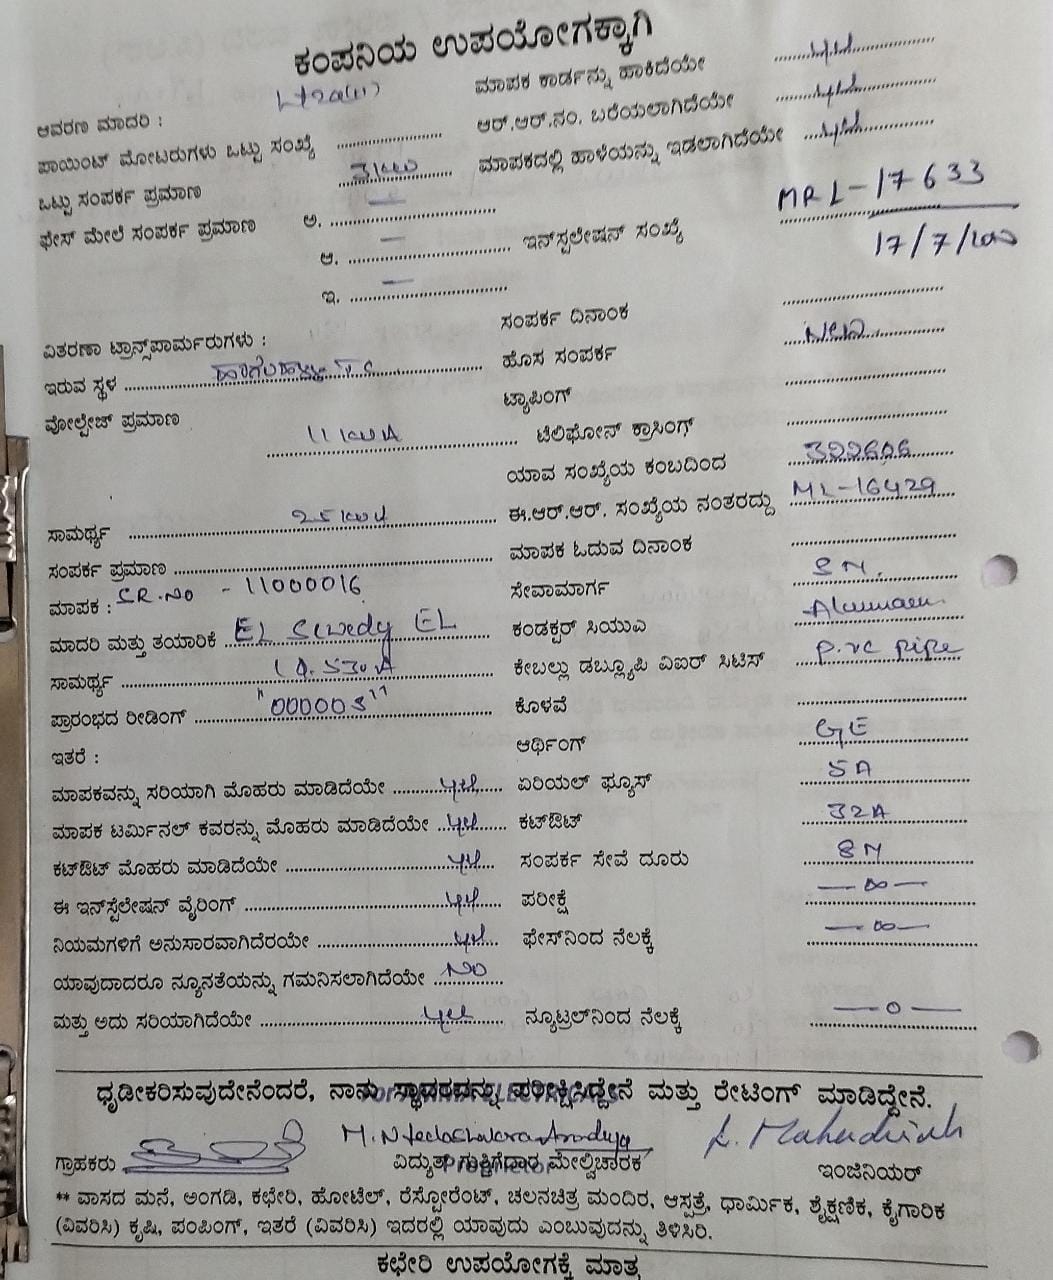 ಕಂಪನಿಯ ಉಪಯೋಗಕ್ಕಾಗಿ
ಆವರಣ ಮಾದರಿ : ಮಾಪಕ ಕಾರ್ಡನ್ನು ಹಾಕಿದೆಯೇ
ಪಾಯಿಂಟ್ ಮೋಟರುಗಳು ಒಟ್ಟು ಸಂಖ್ಯೆ ಆರ್.ಆರ್.ನಂ. ಬರೆಯಲಾಗಿದೆಯೇ
ಒಟ್ಟು ಸಂಪರ್ಕ ಪ್ರಮಾಣ 3KW ಮಾಪಕದಲ್ಲಿ ಹಾಳೆಯನ್ನು ಇಡಲಾಗಿದೆಯೇ
ಫೇಸ್ ಮೇಲೆ ಸಂಪರ್ಕ ಪ್ರಮಾಣ ಅ. —
ಆ. — ಇನ್‌ಸ್ಪಲೇಷನ್ ಸಂಖ್ಯೆ MRL-17633
17/7/
ಇ. —
ಸಂಪರ್ಕ ದಿನಾಂಕ
ವಿತರಣಾ ಟ್ರಾನ್ಸ್‌ಪಾರ್ಮರುಗಳು :
ಇರುವ ಸ್ಥಳ T.C ಹೊಸ ಸಂಪರ್ಕ New
ವೋಲ್ಟೇಜ್ ಪ್ರಮಾಣ 11 ಟ್ಯಾಪಿಂಗ್
ಟೆಲಿಫೋನ್ ಕ್ರಾಸಿಂಗ್
ಯಾವ ಸಂಖ್ಯೆಯ ಕಂಬದಿಂದ 322606
ಸಾಮರ್ಥ್ಯ 25 ಈ.ಆರ್.ಆರ್. ಸಂಖ್ಯೆಯ ನಂತರದ್ದು ML-16429
ಸಂಪರ್ಕ ಪ್ರಮಾಣ ಮಾಪಕ ಓದುವ ದಿನಾಂಕ
ಮಾಪಕ : SR.NO - 11000016 ಸೇವಾಮಾರ್ಗ 8M.
ಮಾದರಿ ಮತ್ತು ತಯಾರಿಕೆ EL Swedy EL ಕಂಡಕ್ಟರ್ ಸಿಯುವಿ
ಸಾಮರ್ಥ್ಯ ಕೇಬಲ್ಲು ಡಬ್ಲ್ಯೂಪಿ ವಿಐರ್ ಸಿಟಿಸ್ P.vc pipe
ಪ್ರಾರಂಭದ ರೀಡಿಂಗ್ "000003" ಕೊಳವೆ
ಇತರೆ : ಆರ್ಥಿಂಗ್ GE
ಮಾಪಕವನ್ನು ಸರಿಯಾಗಿ ಮೊಹರು ಮಾಡಿದೆಯೇ ಏರಿಯಲ್ ಫ್ಯೂಸ್ 5A
ಮಾಪಕ ಟರ್ಮಿನಲ್ ಕವರನ್ನು ಮೊಹರು ಮಾಡಿದೆಯೇ ಕಟ್‌ಔಟ್ 32A
ಕಟ್‌ಔಟ್ ಮೊಹರು ಮಾಡಿದೆಯೇ ಸಂಪರ್ಕ ಸೇವೆ ದೂರು 8M
ಈ ಇನ್‌ಸ್ಟಲೇಷನ್ ವೈರಿಂಗ್ ಪರೀಕ್ಷೆ —∞—
ನಿಯಮಗಳಿಗೆ ಅನುಸಾರವಾಗಿದೆರಯೇ ಫೇಸ್‌ನಿಂದ ನೆಲಕ್ಕೆ —∞—
ಯಾವುದಾದರೂ ನ್ಯೂನತೆಯನ್ನು ಗಮನಿಸಲಾಗಿದೆಯೇ NO
ಮತ್ತು ಅದು ಸರಿಯಾಗಿದೆಯೇ ನ್ಯೂಟ್ರಲ್‌ನಿಂದ ನೆಲಕ್ಕೆ —0—
ಧೃಡೀಕರಿಸುವುದೇನೆಂದರೆ, ನಾನು ಸ್ಥಾವರವನ್ನು ಪರೀಕ್ಷಿಸಿದ್ದೇನೆ ಮತ್ತು ರೇಟಿಂಗ್ ಮಾಡಿದ್ದೇನೆ.
ಗ್ರಾಹಕರು ವಿದ್ಯುತ್ ಗುತ್ತಿಗೆದಾರ ಮೇಲ್ವಿಚಾರಕ ಇಂಜಿನಿಯರ್
Proprietor
** ವಾಸದ ಮನೆ, ಅಂಗಡಿ, ಕಛೇರಿ, ಹೋಟೆಲ್, ರೆಸ್ಟೋರೆಂಟ್, ಚಲನಚಿತ್ರ ಮಂದಿರ, ಆಸ್ಪತ್ರೆ, ಧಾರ್ಮಿಕ, ಶೈಕ್ಷಣಿಕ, ಕೈಗಾರಿಕ
(ವಿವರಿಸಿ) ಕೃಷಿ, ಪಂಪಿಂಗ್, ಇತರೆ (ವಿವರಿಸಿ) ಇದರಲ್ಲಿ ಯಾವುದು ಎಂಬುವುದನ್ನು ತಿಳಿಸಿರಿ.
ಕಛೇರಿ ಉಪಯೋಗಕ್ಕೆ ಮಾತ್ರ